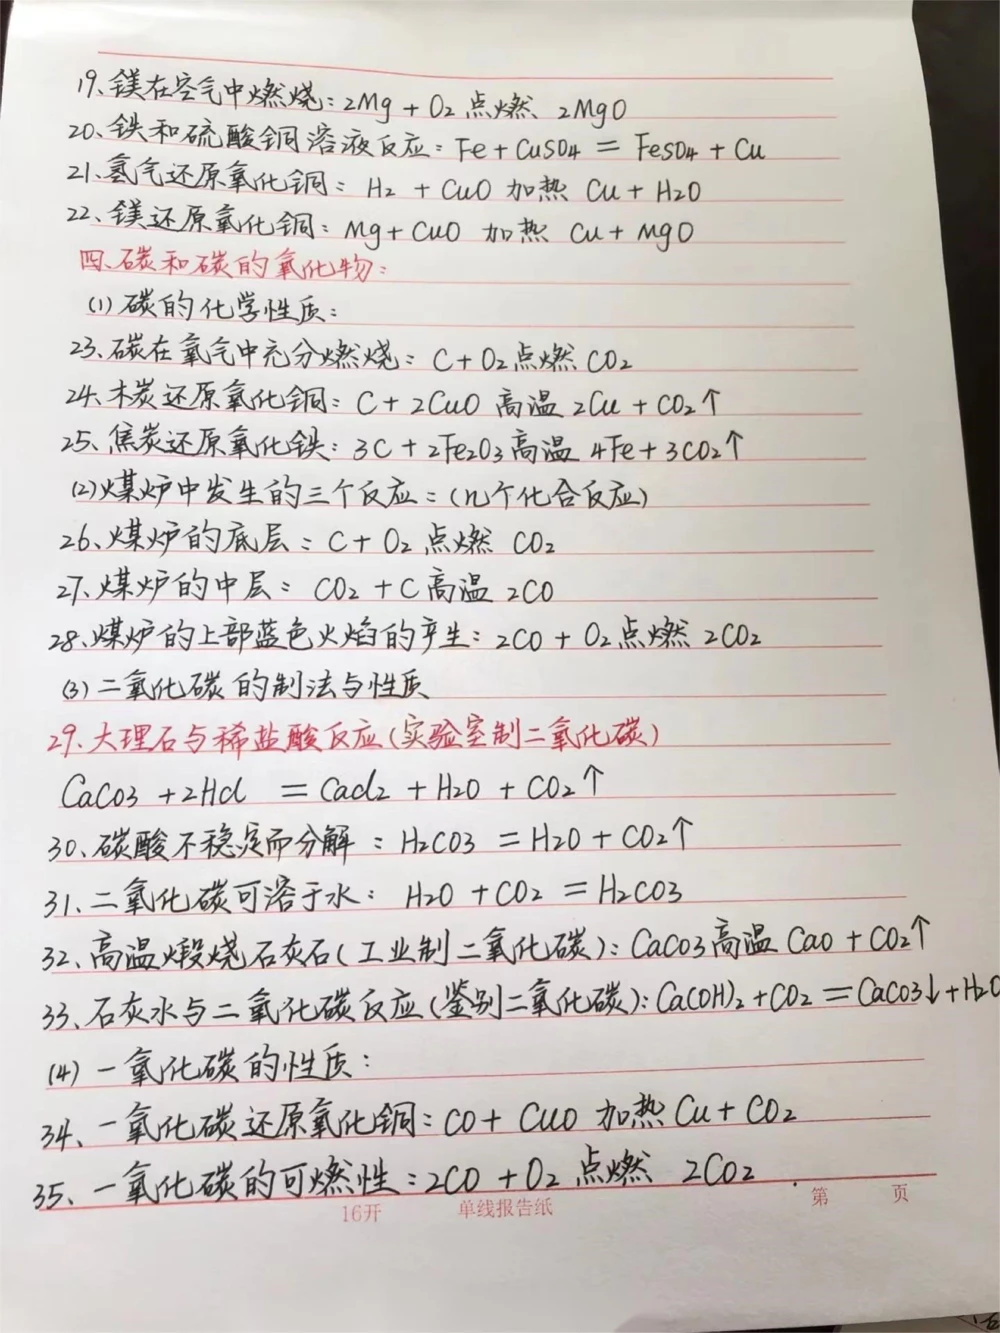 19、镁在空气中燃烧：2Mg + O2 点燃 2MgO
20、铁和硫酸铜溶液反应：Fe + CuSO4 = FeSO4 + Cu
21、氢气还原氧化铜：H2 + CuO 加热 Cu + H2O
22、镁还原氧化铜：Mg + CuO 加热 Cu + MgO
四、碳和碳的氧化物：
(1) 碳的化学性质：
23、碳在氧气中充分燃烧：C + O2 点燃 CO2
24、木炭还原氧化铜：C + 2CuO 高温 2Cu + CO2↑
25、焦炭还原氧化铁：3C + 2Fe2O3 高温 4Fe + 3CO2↑
(2) 煤炉中发生的三个反应：(几个化合反应)
26、煤炉的底层：C + O2 点燃 CO2
27、煤炉的中层：CO2 + C 高温 2CO
28、煤炉的上部蓝色火焰的产生：2CO + O2 点燃 2CO2
(3) 二氧化碳的制法与性质
29、大理石与稀盐酸反应(实验室制二氧化碳)
CaCO3 + 2HCl = CaCl2 + H2O + CO2↑
30、碳酸不稳定而分解：H2CO3 = H2O + CO2↑
31、二氧化碳可溶于水：H2O + CO2 = H2CO3
32、高温煅烧石灰石(工业制二氧化碳)：CaCO3 高温 CaO + CO2↑
33、石灰水与二氧化碳反应(鉴别二氧化碳)：Ca(OH)2 + CO2 = CaCO3↓ + H2O
(4) 一氧化碳的性质：
34、一氧化碳还原氧化铜：CO + CuO 加热 Cu + CO2
35、一氧化碳的可燃性：2CO + O2 点燃 2CO2
16开 单线报告纸 第 页